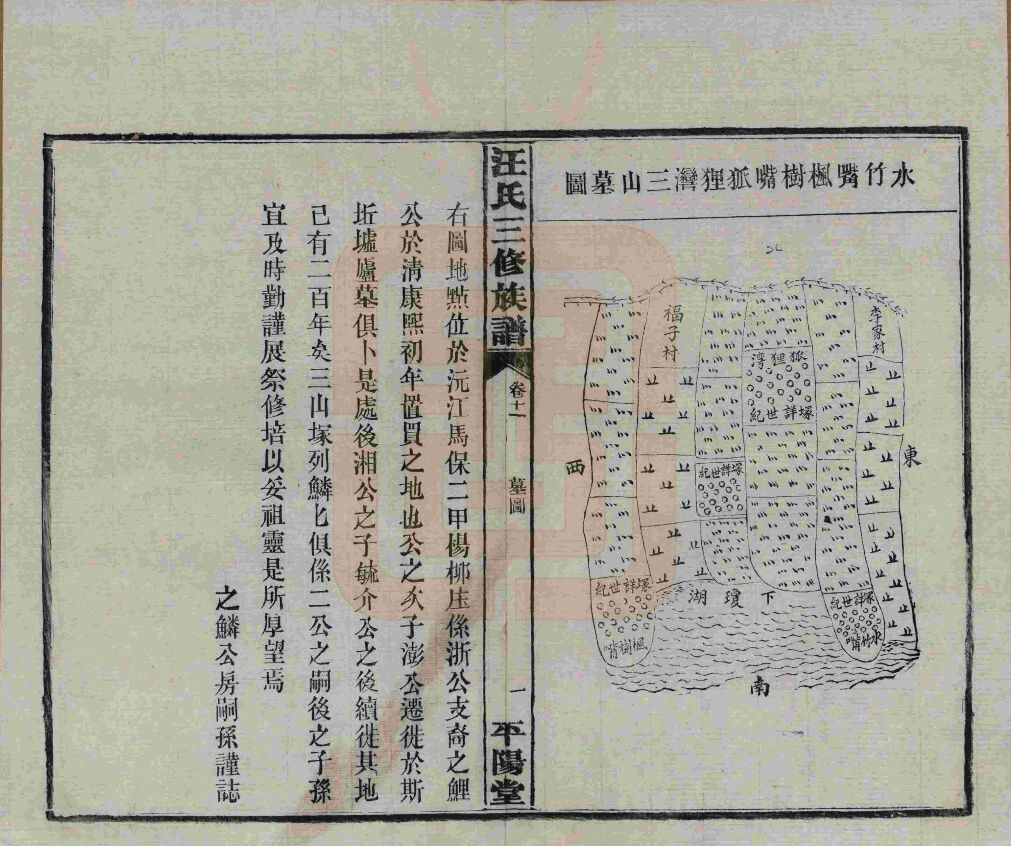 水竹嘴楓樹嘴狐狸灣三山墓圖
北
李家村
福子村
狐狸灣
塚詳世紀
塚詳世紀
東
西
塚詳世紀
楓樹嘴
下瓊湖
塚詳世紀
水竹嘴
南
汪氏三修族譜
卷十一
墓圖
一
平陽堂
右圖地㸃位於沅江馬保二甲楊柳庄係浙公支裔之鯉
公於清康熙初年置買之地也公之次子澎公遷徙於斯
坵墟廬墓俱卜是處後湘公之子毓介公之後續徙其地
已有二百年矣三山塚列鱗匕俱係二公之嗣後之子孫
宜及時勤謹展祭修培以妥祖靈是所厚望焉
之鱗公房嗣孫謹誌